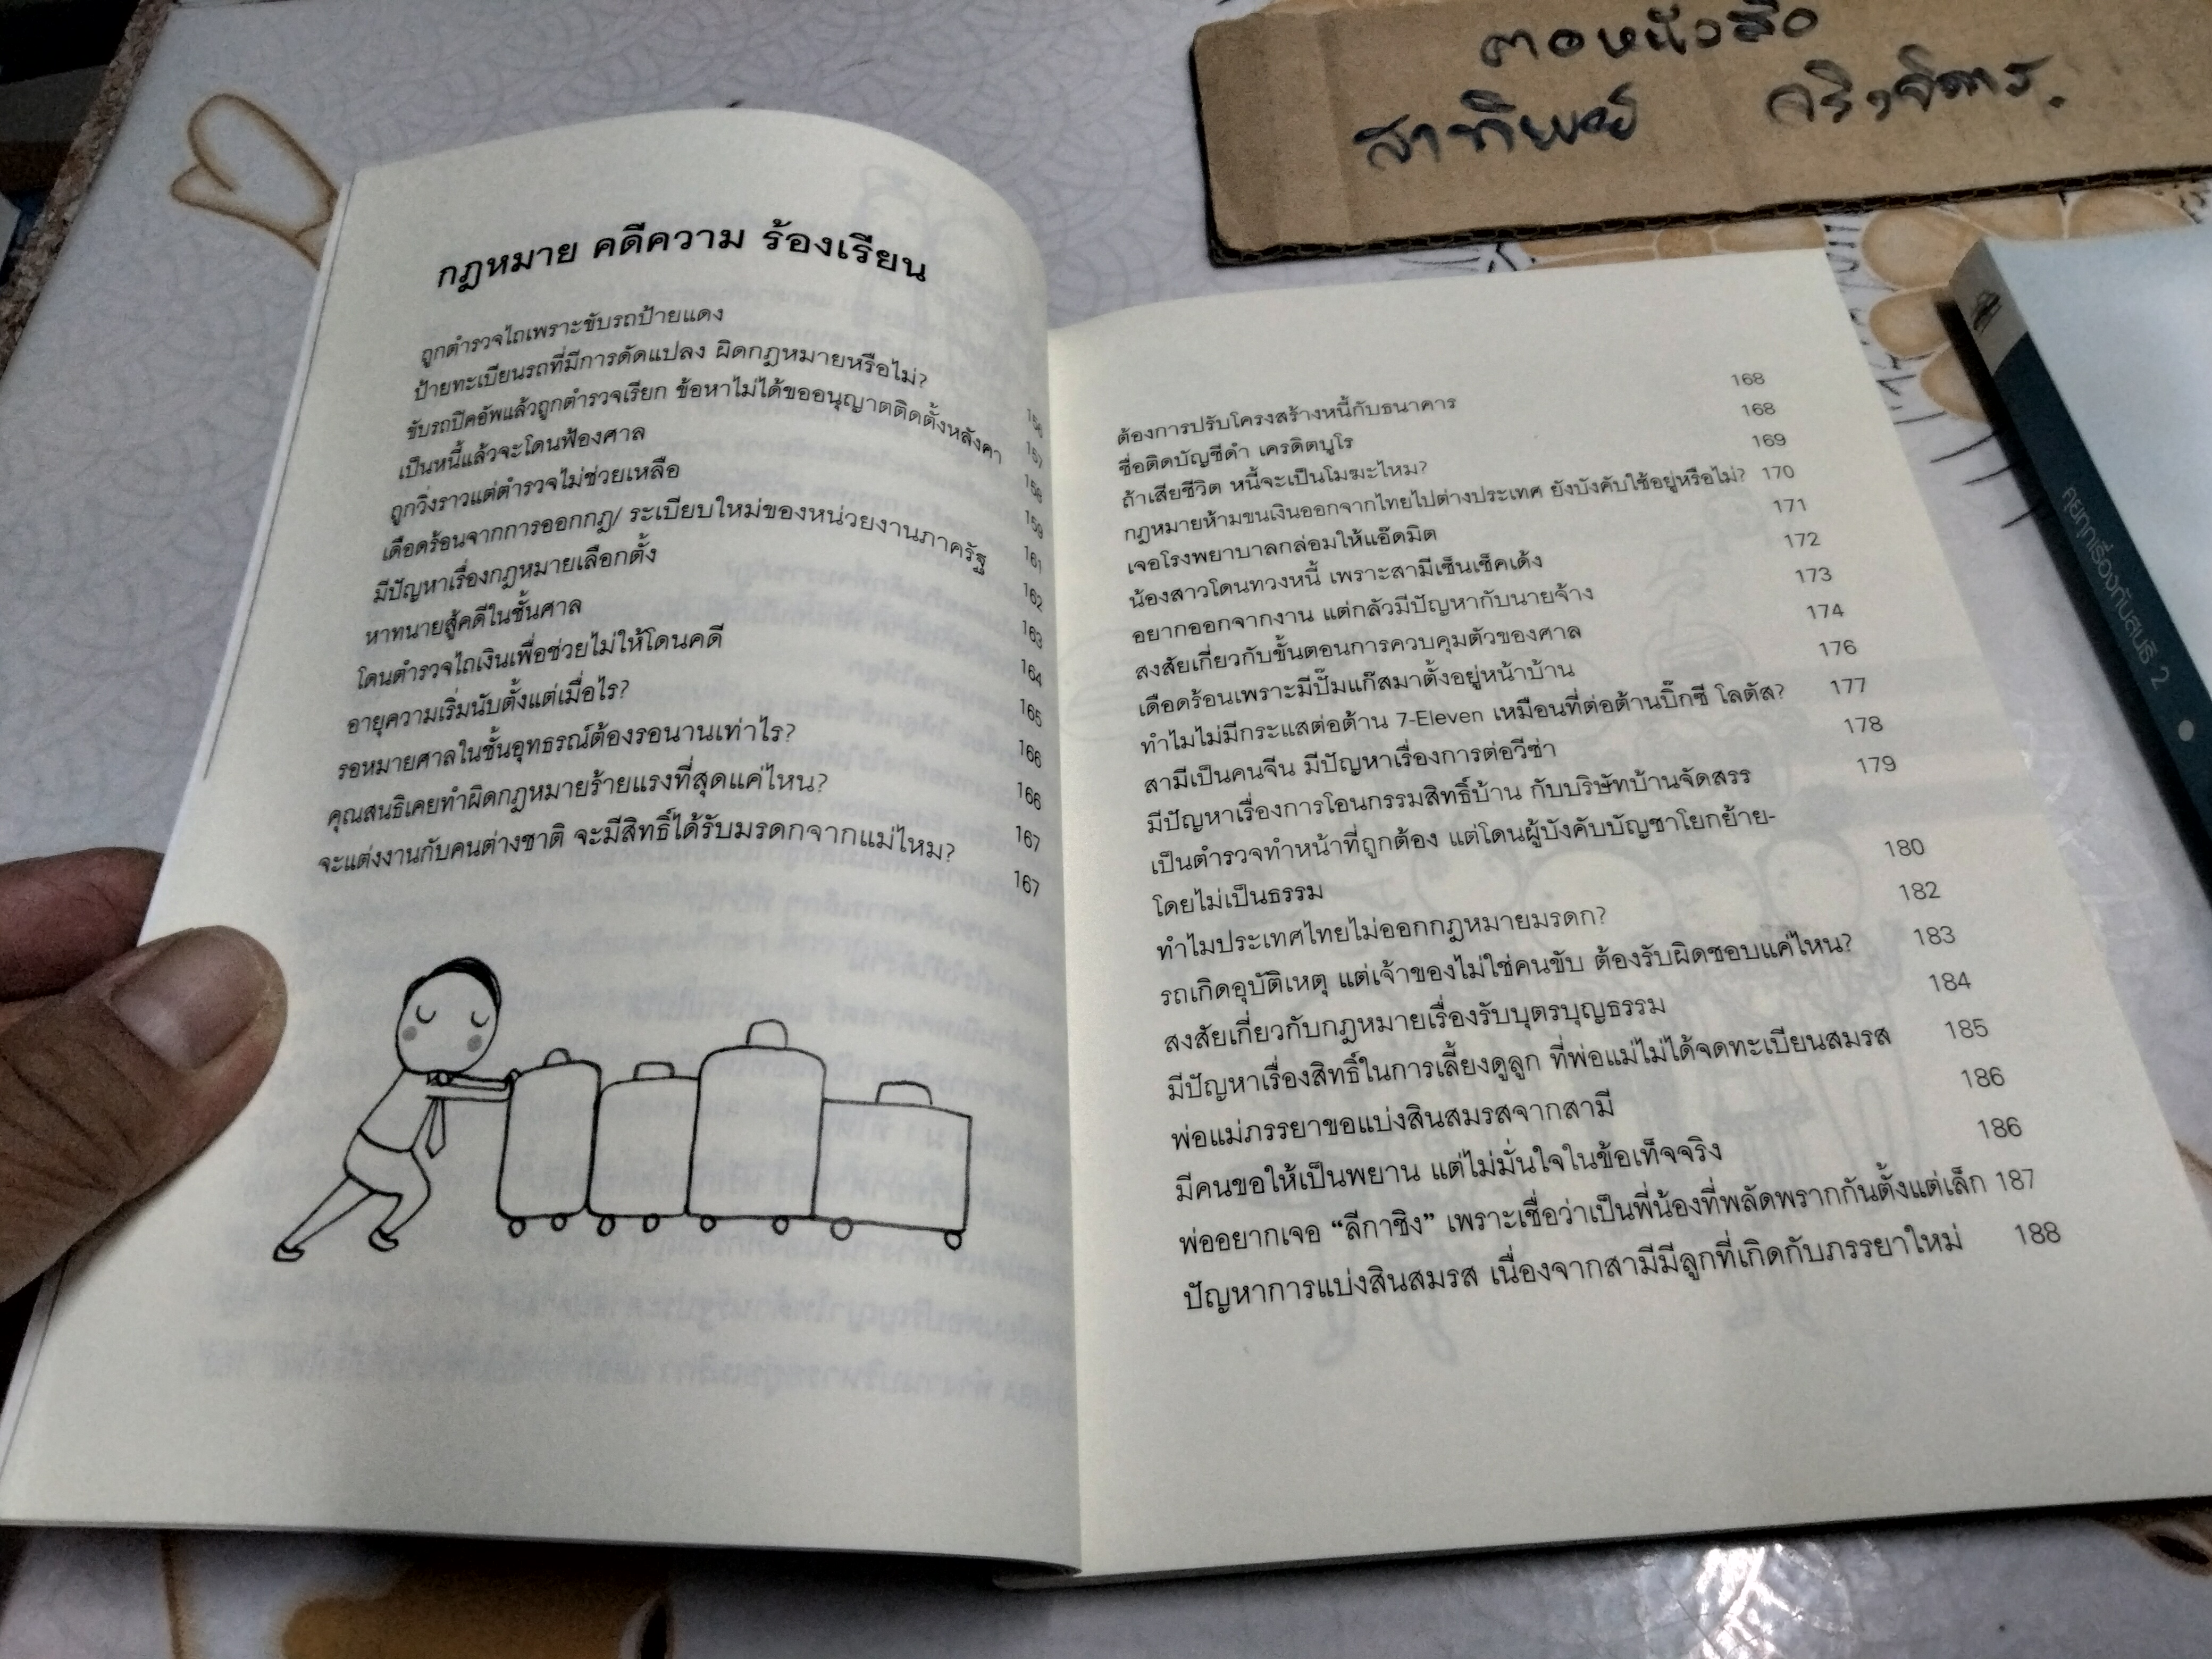 ตอหนังสือ
สาทิพย์ จริงจิตร.
กฎหมาย คดีความ ร้องเรียน
ถูกตำรวจไถเพราะขับรถป้ายแดง 156
ป้ายทะเบียนรถที่มีการดัดแปลง ผิดกฎหมายหรือไม่? 157
ขับรถปิคอัพแล้วถูกตำรวจเรียก ข้อหาไม่ได้ขออนุญาตติดตั้งหลังคา 158
เป็นหนี้แล้วจะโดนฟ้องศาล 159
ถูกวิ่งราวแต่ตำรวจไม่ช่วยเหลือ 161
เดือดร้อนจากการออกกฎ/ ระเบียบใหม่ของหน่วยงานภาครัฐ 162
มีปัญหาเรื่องกฎหมายเลือกตั้ง 163
หาทนายสู้คดีในชั้นศาล 164
โดนตำรวจไถเงินเพื่อช่วยไม่ให้โดนคดี 165
อายุความเริ่มนับตั้งแต่เมื่อไร? 166
รอหมายศาลในชั้นอุทธรณ์ต้องรอนานเท่าไร? 166
คุณสนธิเคยทำผิดกฎหมายร้ายแรงที่สุดแค่ไหน? 167
จะแต่งงานกับคนต่างชาติ จะมีสิทธิ์ได้รับมรดกจากแม่ไหม? 167
ต้องการปรับโครงสร้างหนี้กับธนาคาร 168
ชื่อติดบัญชีดำ เครดิตบูโร 168
ถ้าเสียชีวิต หนี้จะเป็นโมฆะไหม? 169
กฎหมายห้ามขนเงินออกจากไทยไปต่างประเทศ ยังบังคับใช้อยู่หรือไม่? 170
เจอโรงพยาบาลกล่อมให้แอ๊ดมิต 171
น้องสาวโดนทวงหนี้ เพราะสามีเซ็นเช็คเด้ง 172
อยากออกจากงาน แต่กลัวมีปัญหากับนายจ้าง 173
สงสัยเกี่ยวกับขั้นตอนการควบคุมตัวของศาล 174
เดือดร้อนเพราะมีปั๊มแก๊สมาตั้งอยู่หน้าบ้าน 176
ทำไมไม่มีกระแสต่อต้าน 7-Eleven เหมือนที่ต่อต้านบิ๊กซี โลตัส? 177
สามีเป็นคนจีน มีปัญหาเรื่องการต่อวีซ่า 178
มีปัญหาเรื่องการโอนกรรมสิทธิ์บ้าน กับบริษัทบ้านจัดสรร 179
เป็นตำรวจทำหน้าที่ถูกต้อง แต่โดนผู้บังคับบัญชาโยกย้าย-
โดยไม่เป็นธรรม 180
ทำไมประเทศไทยไม่ออกกฎหมายมรดก? 182
รถเกิดอุบัติเหตุ แต่เจ้าของไม่ใช่คนขับ ต้องรับผิดชอบแค่ไหน? 183
สงสัยเกี่ยวกับกฎหมายเรื่องรับบุตรบุญธรรม 184
มีปัญหาเรื่องสิทธิ์ในการเลี้ยงดูลูก ที่พ่อแม่ไม่ได้จดทะเบียนสมรส 185
พ่อแม่ภรรยาขอแบ่งสินสมรสจากสามี 186
มีคนขอให้เป็นพยาน แต่ไม่มั่นใจในข้อเท็จจริง 186
พ่ออยากเจอ “ลีกาชิง” เพราะเชื่อว่าเป็นพี่น้องที่พลัดพรากกันตั้งแต่เล็ก 187
ปัญหาการแบ่งสินสมรส เนื่องจากสามีมีลูกที่เกิดกับภรรยาใหม่ 188
คุยทุกเรื่องกับสนธิ 2